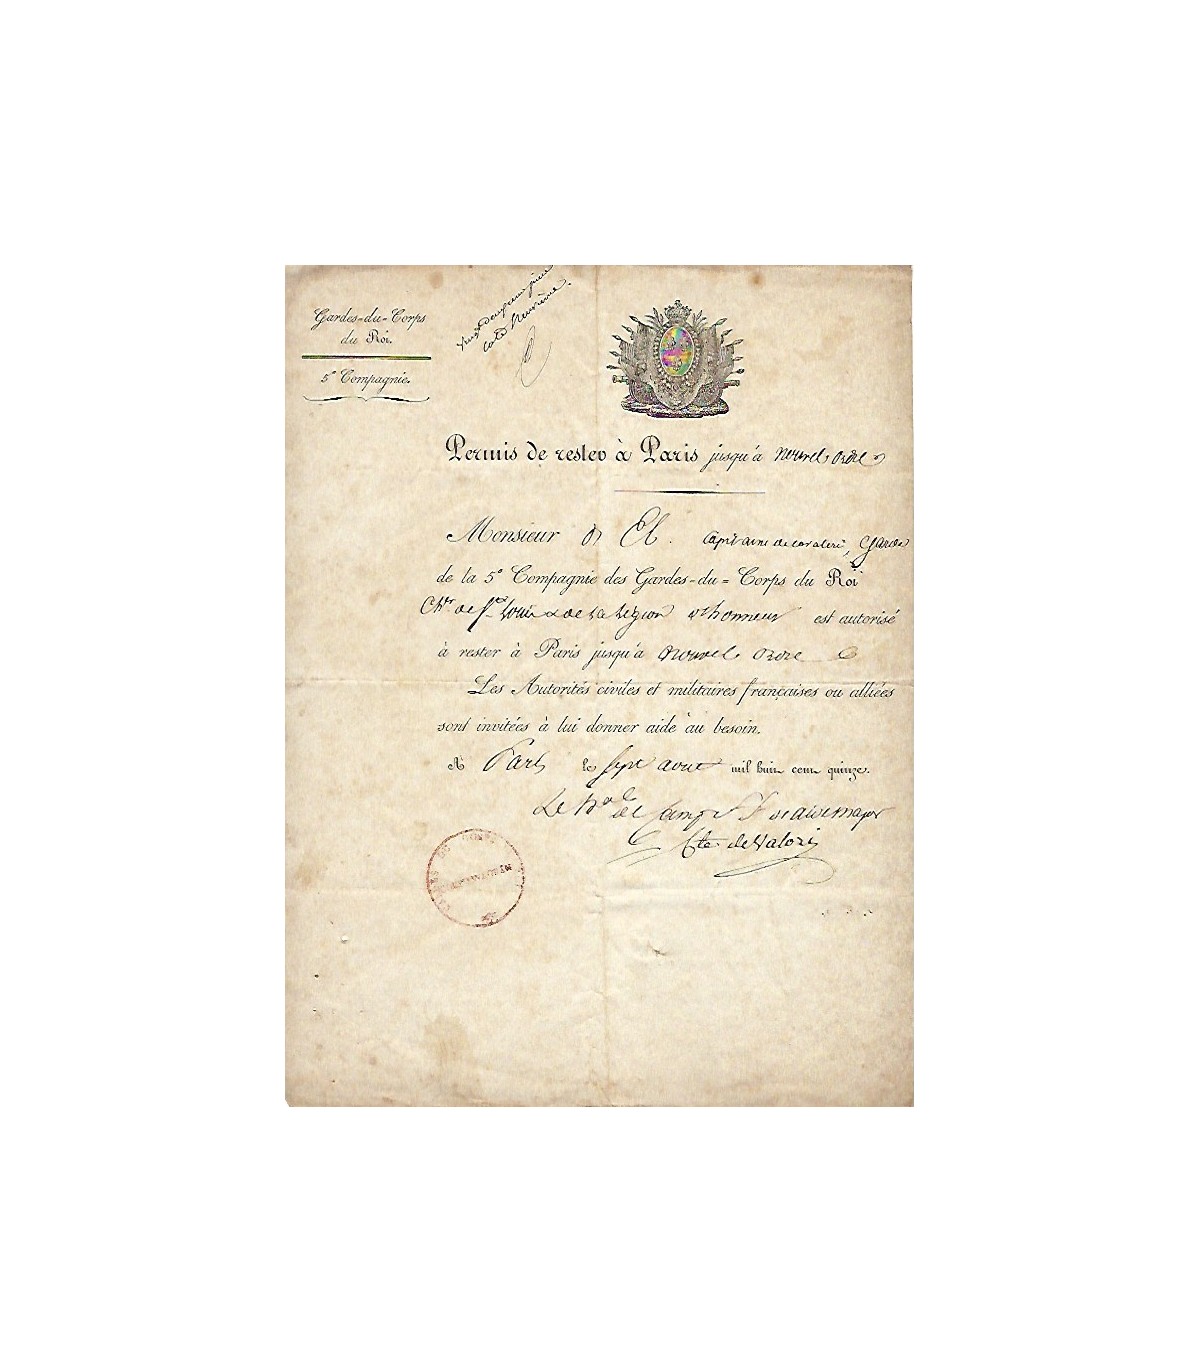 Gardes-du-Corps
du Roi.
5e Compagnie.
cote neuvième.
Permis de rester à Paris jusqu'à nouvel ordre
Monsieur capitaine de cavalerie, Garde
de la 5e Compagnie des Gardes-du-Corps du Roi
Chr. de St. Louis & de la Légion d'honneur est autorisé
à rester à Paris jusqu'à nouvel ordre
Les Autorités civiles et militaires françaises ou alliées
sont invitées à lui donner aide au besoin.
A Paris le sept aout mil huit cent quinze.
Le de camp aide major
Cte. de Valori